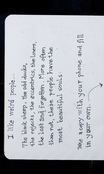 I like weird people.
The black sheep, the odd ducks,
the rejects, the eccentrics, the loners,
the lost and forgotten. More often
than not, these people have the
most beautiful souls.
Take a copy with your phone and fill
in your own.